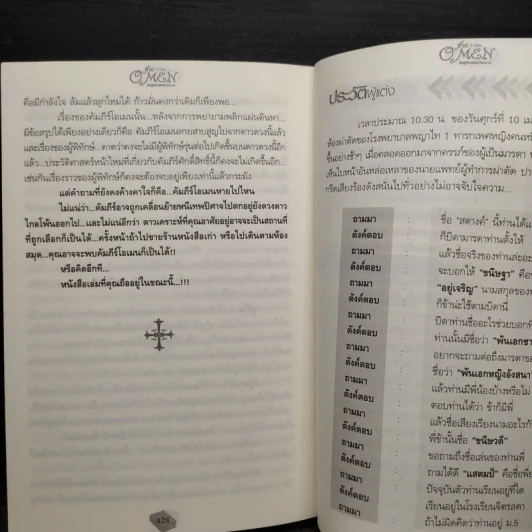 O'MEN
คือมีกำลังใจ ล้มแล้วลุกใหม่ได้ ก้าวมั่นคงกว่าเดิมก็เพียงพอ...
เรื่องของคัมภีร์โอเมนนั้น...หลังจากการพยายามพลิกแผ่นดินหา...
มีข้อสรุปได้เพียงอย่างเดียวก็คือ คัมภีร์โอเมนหายสาบสูญไปจากดาวดวงนี้แล้ว
และเรื่องของผู้พิทักษ์... คาดว่าคงจะไม่มีผู้พิทักษ์รุ่นต่อไปเกิดขึ้นบนดาวดวงนี้อีก
แล้ว...ประวัติศาสตร์หน้าใหม่ที่เกี่ยวกับคัมภีร์ศักดิ์สิทธิ์นี้ก็คงจะไม่เกิดขึ้นอีก...
เช่นกันเรื่องราวของผู้พิทักษ์ก็คงจะต้องจบอยู่เพียงเท่านี้แล้วกระมัง
แต่คำถามที่ยังคงค้างคาใจก็คือ...คัมภีร์โอเมนหายไปไหน
ไม่แน่ว่า...คัมภีร์อาจถูกเคลื่อนย้ายหนีเทพปีศาจไปตกอยู่ยังดวงดาว
ไกลโพ้นออกไป...และไม่แน่อีกว่า ดาวเคราะห์ที่คุณอาศัยอยู่อาจจะเป็นสถานที่
ที่ถูกเลือกก็เป็นได้...ครั้งหน้าถ้าไปขายร้านหนังสือเก่า หรือไปเดินตามห้อง
สมุด...คุณอาจจะพบคัมภีร์โอเมนก็เป็นได้!!
หรือคิดอีกที...
หนังสือเล่มที่คุณถืออยู่ในขณะนี้...!!!
428
O'MEN
ประวัติผู้แต่ง
เวลาประมาณ 10.30 น. ของวันศุกร์ที่ 10 เม
ห้องผ่าตัดของโรงพยาบาลพญาไท 1 ทารกเพศหญิงคนหนึ่
ขึ้นอย่างช้าๆ เมื่อคลอดออกมาจากครรภ์ของผู้เป็นมารดา
เส้นใบหน้าอันหล่อเหลาของนายแพทย์ผู้ทำการผ่าตัด
กรีดเสียงร้องดังสนั่นไปทั่วอย่างไม่อาจจับใจความ...
ถามมา : ชื่อ "สตางค์" นี้ท่านได้แ
ตังค์ตอบ : ก็บิดามารดาท่านตั้งให้
ถามมา : แล้วชื่อจริงของท่านล่ะอะ
ตังค์ตอบ : จะบอกให้ "ขนิษฐา" คือช
"อยู่เจริญ" นามสกุลของพ
ถามมา : ก็ข้าน่ะใช้ตามบิดานี่
ตังค์ตอบ : บิดาท่านชื่ออะไรช่วยบอกที
ถามมา : ท่านนั้นมีชื่อว่า "พันเอกชา
ตังค์ตอบ : อยากจะถามต่อถึงมารดาขอ
ถามมา : ชื่อว่า "พันเอกหญิงอังสนา
ตังค์ตอบ : แล้วท่านมีพี่น้องบ้างหรือไม่
ถามมา : ตอบท่านได้ว่า ข้าก็มีพี่
ตังค์ตอบ : แล้วชื่อเสียงเรียงนามอะไรกั
ถามมา : พี่ข้านั้นชื่อ "ขนิษวดี"
ตังค์ตอบ : ขอถามถึงชื่อเล่นของท่านพี่
ถามมา : ถามได้ดี "แสตมป์" คือชื่อพี่ย
ตังค์ตอบ : ปัจจุบันตัวท่านเรียนอยู่ที่ใด
ถามมา : เรียนอยู่ในโรงเรียนจิตรลดา
ตังค์ตอบ : ถ้าไม่ผิดคิดว่าท่านอยู่ ม.5